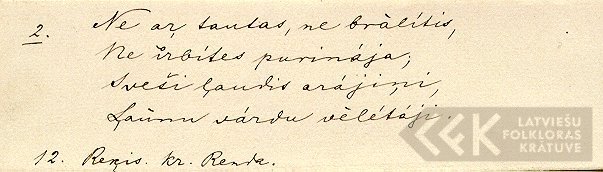 2. Ne ar tautas, ne brālītis,
Ne irbītes purināja;
Sveši ļaudis arājiņi,
Ļaunu vārdu vēlētāji.
12. Reģis. kr. Renda.
LATVIEŠU
FOLKLORAS
KRĀTUVE